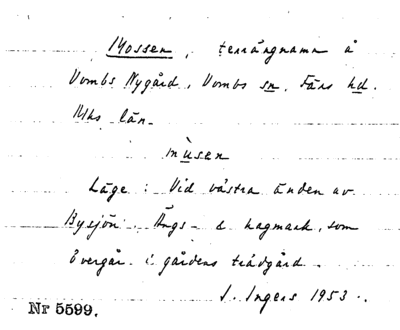 Mossen, terrängnamn å
Vombs Nygård, Vombs sn, Färs hd.
Mhs län.
mùsen
Läge: Vid västra änden av
Bysjön. Ängs- & hagmark, som
övergår i gårdens trädgård.
I. Ingers 1953.
Nr 5599.